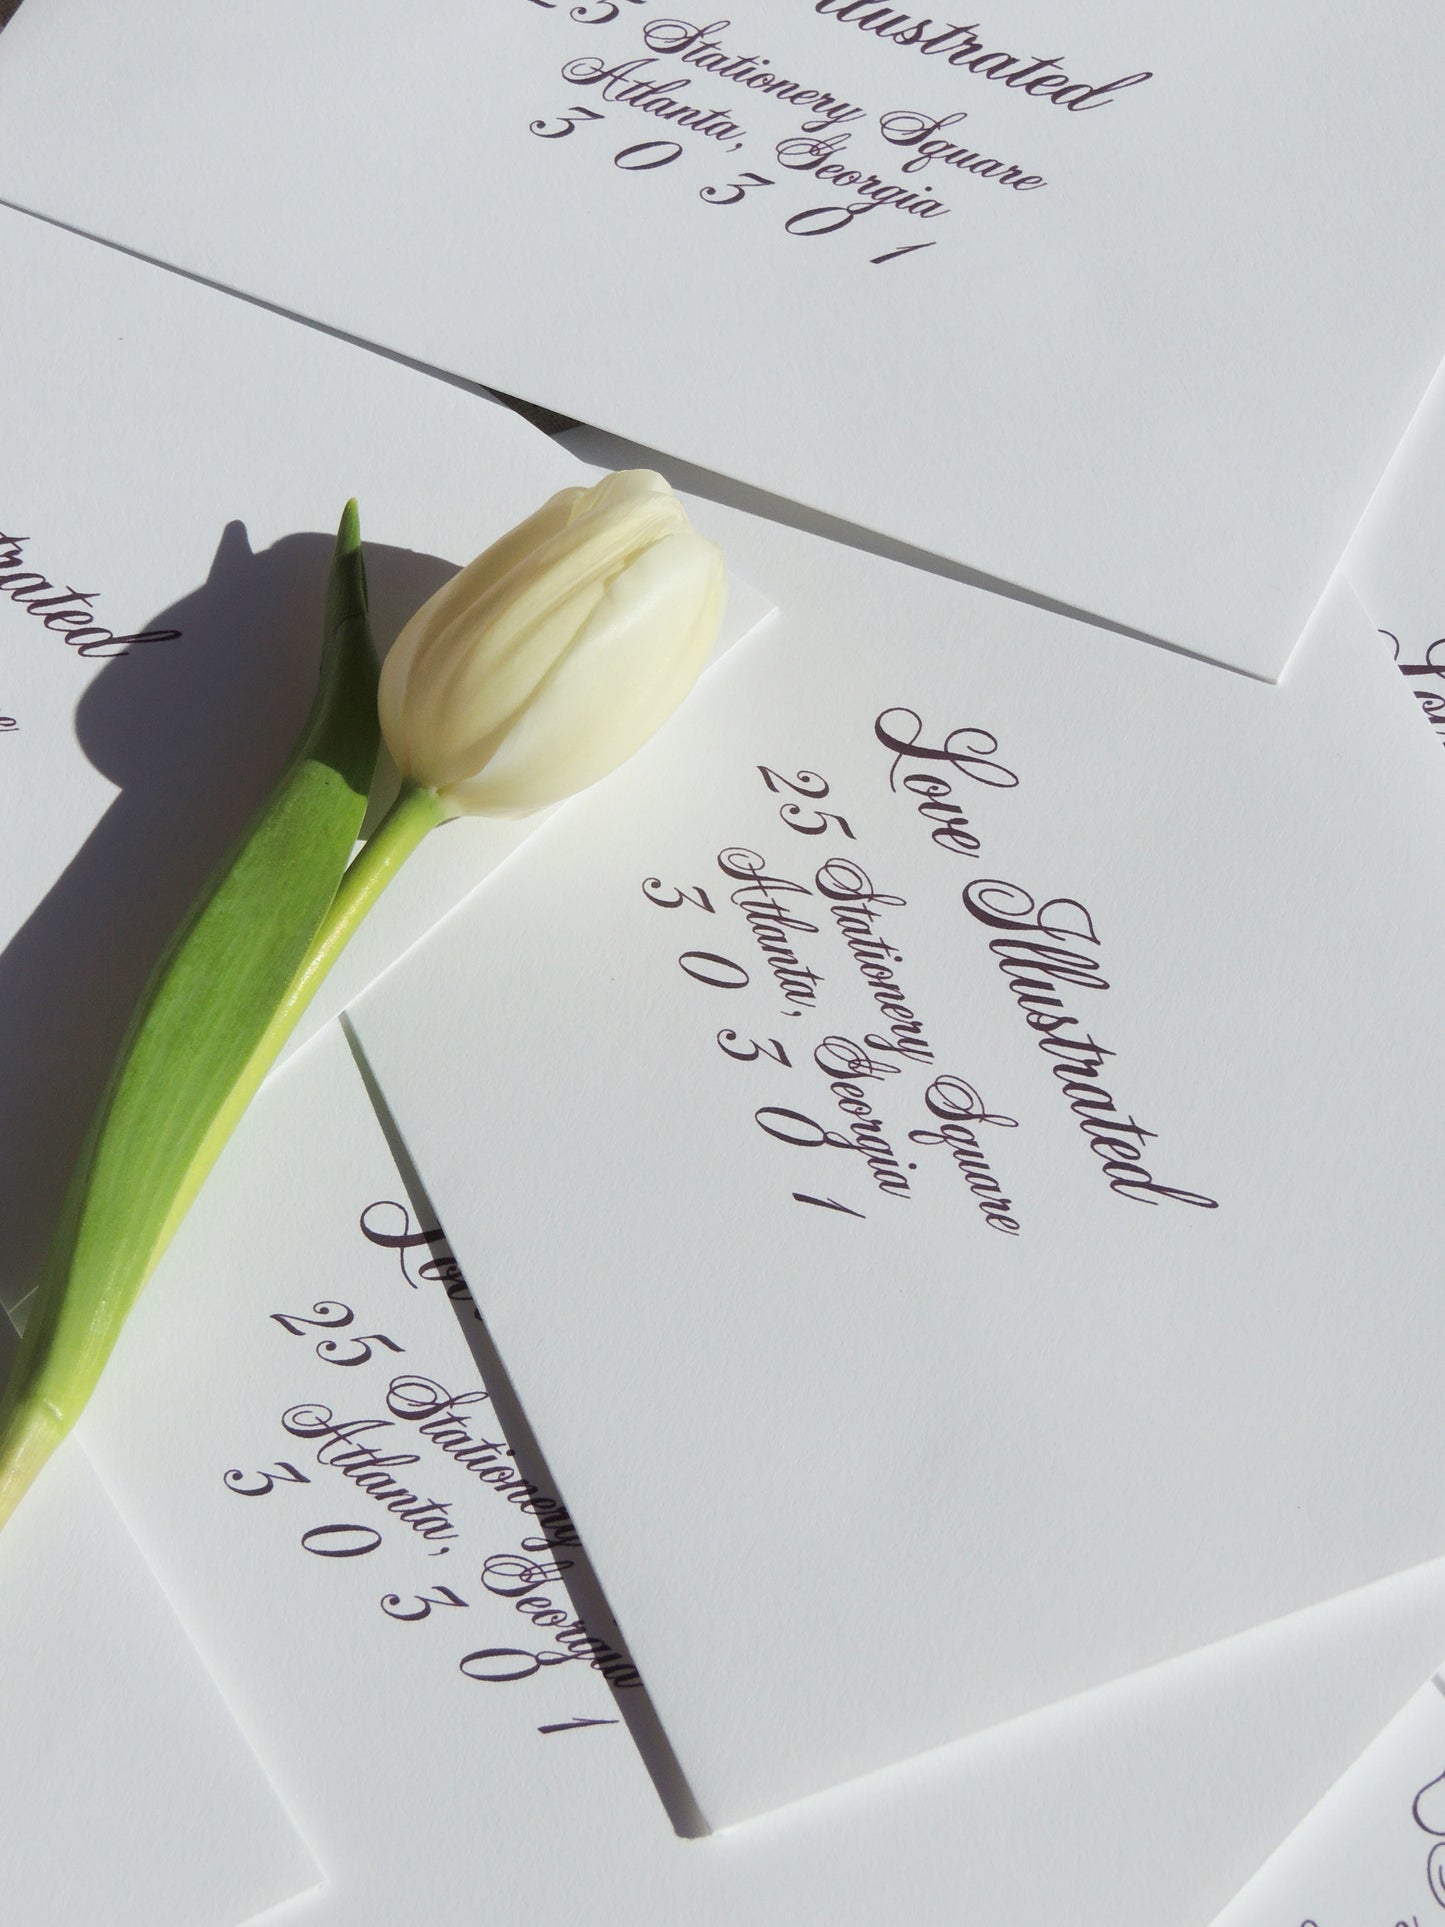 Illustrated
25 Stationery Square
Atlanta, Georgia
3 0 3 0 1
Love Illustrated
25 Stationery Square
Atlanta, Georgia
3 0 3 0 1
25 Stationery
Atlanta, Georgia
3 0 3 0 1